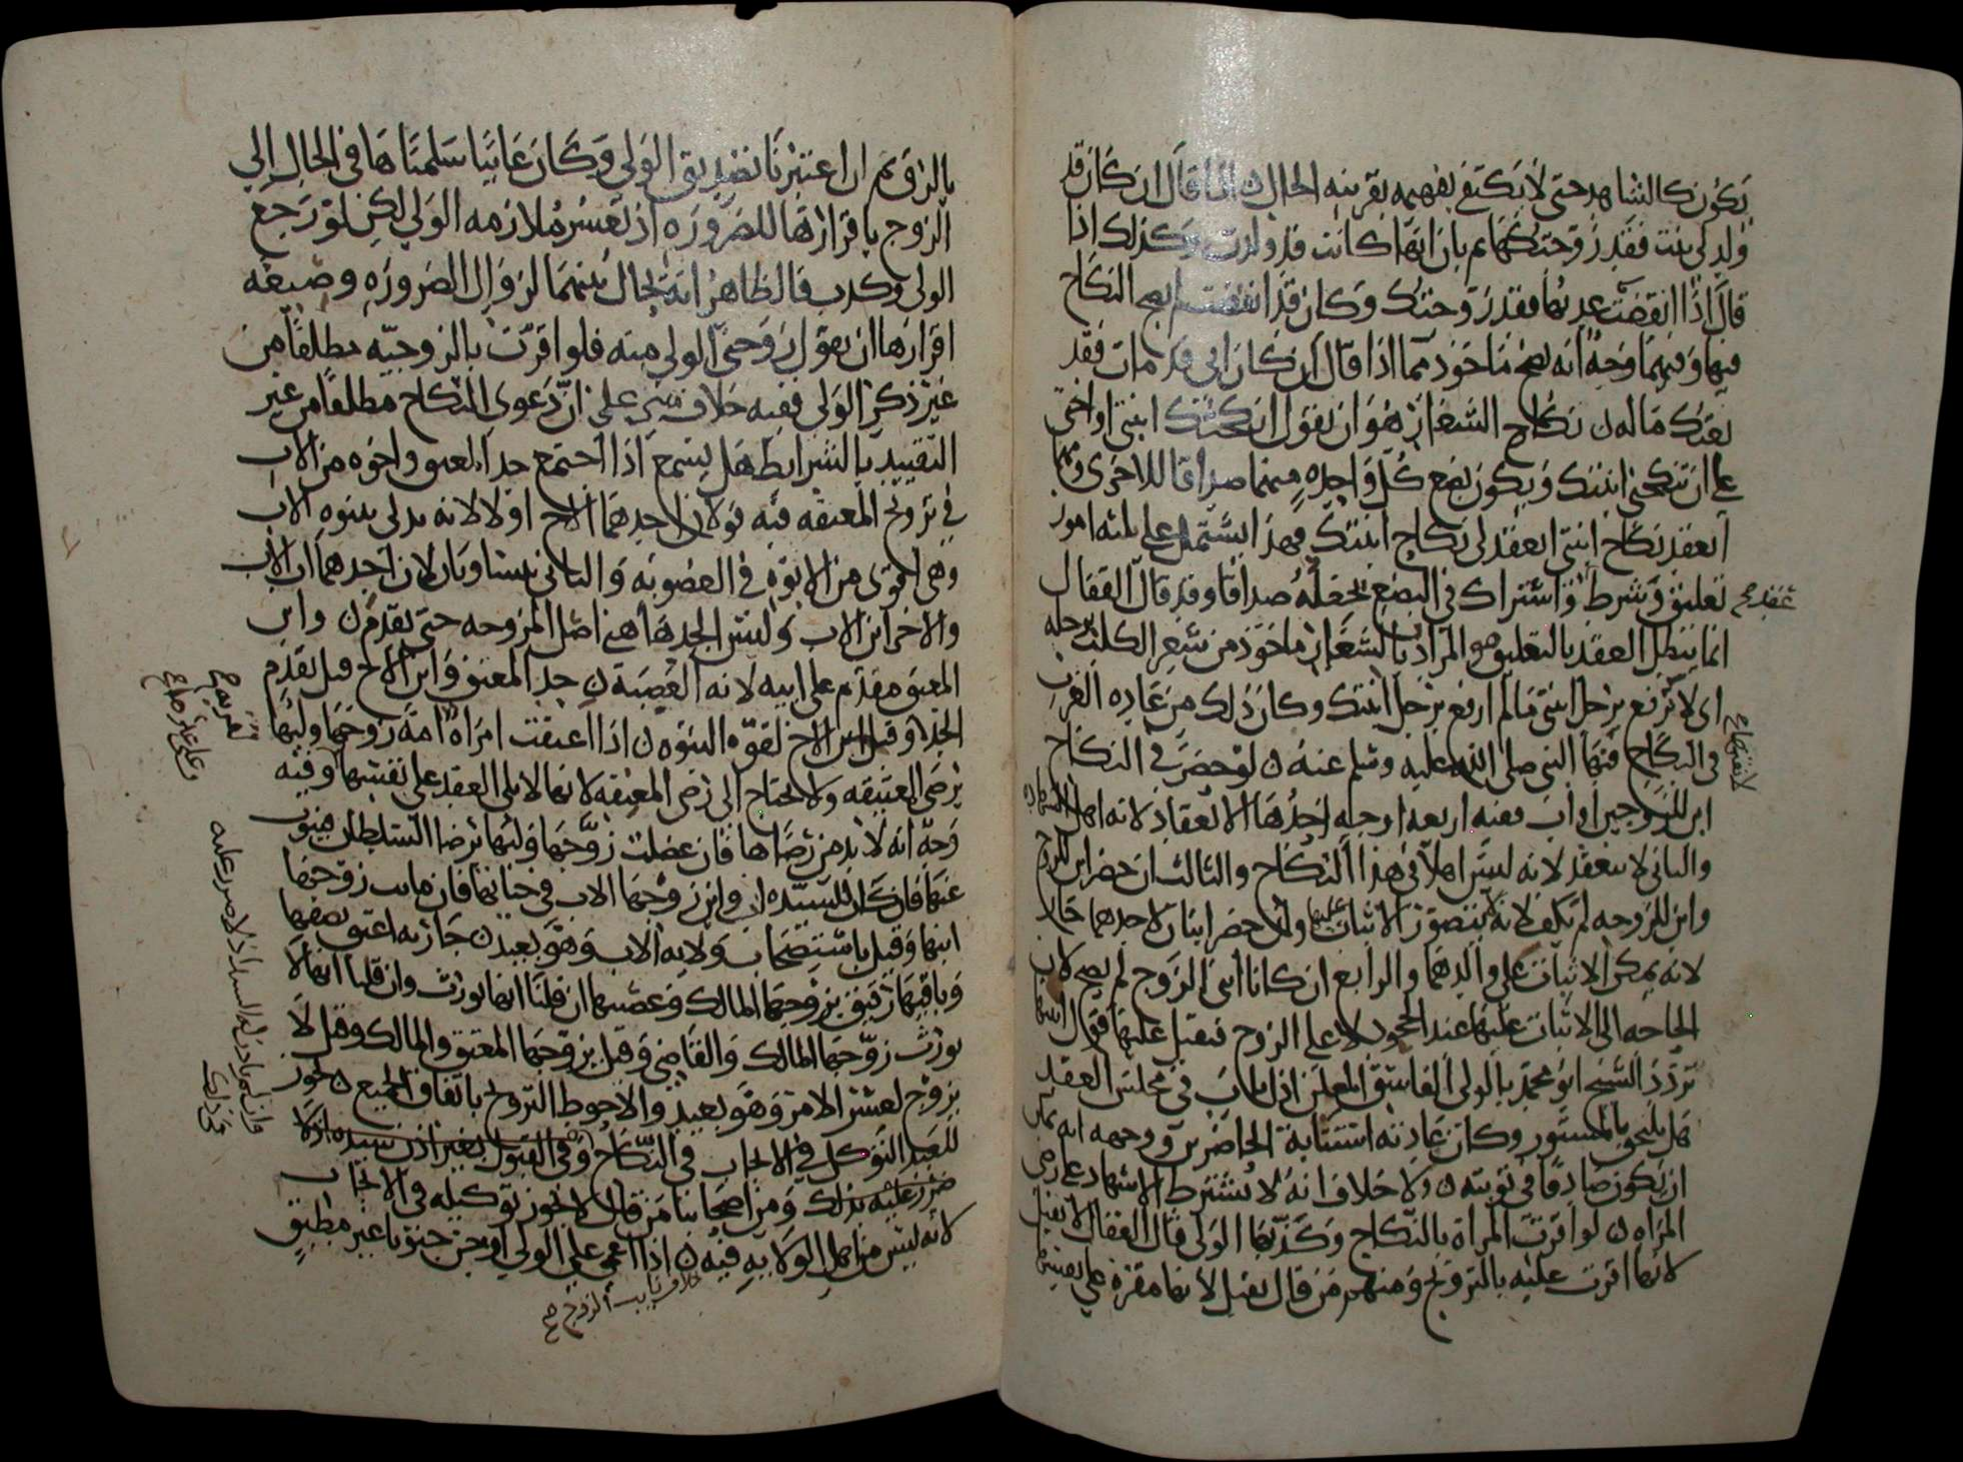 يكون كالشاهد حتى لا يكتفى بفهمه بقرينه الحال اذا قال ان كان قد
ولد لى بنت فقد زوجتكها ثم بان انها كانت قد ولدت وكذلك اذا
قال اذا انقضت عدتها فقد زوجتك وكان قد انقضت لم يصح النكاح
فيها وفيهما وجه انه يصح ماخوذ مما اذا قال ان كان ابى قد مات فقد
بعتك ماله نكاح الشغار هو ان يقول انكحتك ابنتى او اختى
على ان تنكحنى ابنتك ويكون بضع كل واحده منهما صداقا للاخرى ومهما
انعقد نكاح ابنتى انعقد لى نكاح ابنتك فهذا يشتمل على ثلثه امور
تعليق وشرط واشتراك فى البضع بجعله صداقا وقد قال القفال
انما يبطل العقد بالتعليق وهو المراد بالشغار ماخوذ من شغر الكلب برجله
اى لا ترفع برجل ابنتى مالم ارفع برجل ابنتك وكان ذلك من عاده العرب
فى النكاح فنها النبى صلى الله عليه وسلم عنه لو حضر فى النكاح
ابن للزوجين او اب ففيه اربعه اوجه احدها الانعقاد لانه اهل
والثانى لا ينعقد لانه ليس اهلا فى هذا النكاح والثالث ان حضر ابن للزوج
وابن للزوجه لم يكف لانه لا يتصور الاثبات عليهما ولو حضر ابنان لاحدهما جاز
لانه يمكن الاثبات على والدهما والرابع ان كانا ابنى الزوج لم يصح لان
الحاجه الى الاثبات عليها عند الجحود لا على الزوج فيقبل عليها قول
تردد الشيخ ابو محمد بالولى الفاسق المعلن اذا تاب فى مجلس العقد
هل يلحق بالمستور وكان عادته استتابة الحاضرين ووجهه انه
ان يكون صادقا فى توبته ولا خلاف انه لا يشترط الاشهاد على رضى
المراه لو اقرت المراة بالنكاح وكذبها الولى قال القفال لا يقبل
لانها اقرت عليه بالتزويج ومنهم من قال يقبل لانها مقره على نفسها
بالرق ثم ان اعتبرنا تصديق الولى وكان غايبا سلمناها فى الحال الى
الزوج باقرارها للضروره اذ تعسر ملازمه الولى لكن لو رجع
الولى وكذب فالظاهر انه يحال بينهما لزوال الضروره وصيغه
اقرارها ان تقول زوجنى الولى منه فلو اقرت بالزوجيه مطلقا من
غير ذكر الولى ففيه خلاف مبنى على ان دعوى النكاح مطلقا من غير
التقييد بالشرايط هل يسمع اذا اجتمع جد المعتق واخوه من الاب
فى تزويج المعتقه فيه قولان احدهما الاخ اولا لانه يدلى ببنوه الاب
وهى اقوى من الابوه فى العصوبه والثانى يستاويان لان احدهما اب الاب
والاخر ابن الاب وليس الجد هاهنا اصل المزوجه حتى يقدم وابن
المعتق مقدم على ابيه لانه العصبة جد المعتق وابن الاخ قيل يقدم
الجد وقيل ابن الاخ لقوه البنوه اذا اعتقت امراه امة زوجها وليها
برضى العتيقه ولا يحتاج الى رضى المعتقه لانها لا تلى العقد على نفسها وفيه
وجه انه لا بد من رضاها فان عضلت زوجها وليها برضا السلطان
عنها فان كان للسيده ابن زوجها الاب فى حياتها فان ماتت زوجها
ابنها وقيل باستصحاب ولايه الاب وهو بعيد جارية اعتق نصفها
وباقيها رقيق يزوجها المالك وعصبتها ان قلنا انها تورث وان قلنا انها لا
تورث زوجها المالك والقاضى وقيل يزوجها المعتق والمالك وقيل لا
يزوج لعسر الامر وهو بعيد والاحوط التزويج باتفاق الجميع يجوز
للعبد التوكل فى الايجاب فى النكاح وفى القبول بغير اذن سيده اذ لا
ضرر عليه بذلك ومن اصحابنا من قال لا يجوز توكيله فى الايجاب
لانه ليس من اهل الولايه فيه اذا اغمى على الولى او جن جنونا غير مطبق